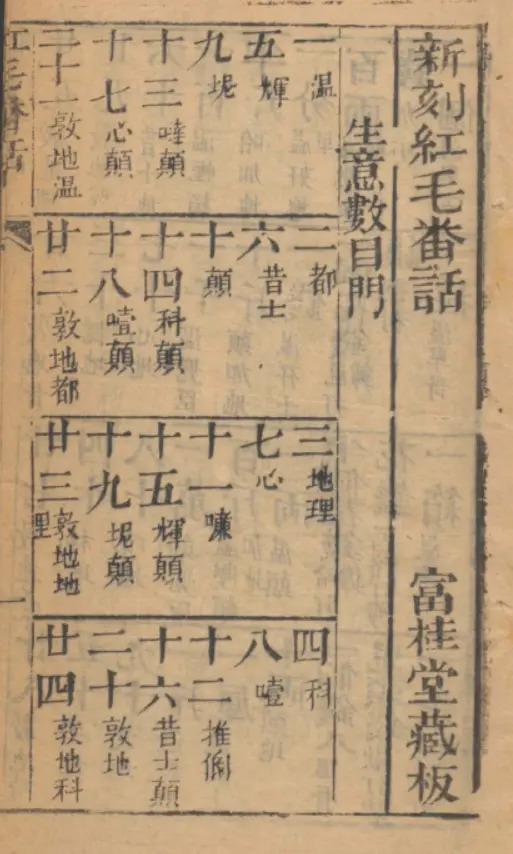 新刻紅毛番話 富桂堂藏板
生意數目門
一温 二都 三地理 四科
五輝 六昔士 七心 八噎
九坭 十顛 十一 十二推
十三顛 十四科顛 十五輝顛 十六昔士顛
十七心顛 十八噎顛 十九坭顛 二十敦地
二十一敦地温 廿二敦地都 廿三敦地地理 廿四敦地科
紅毛番話 一